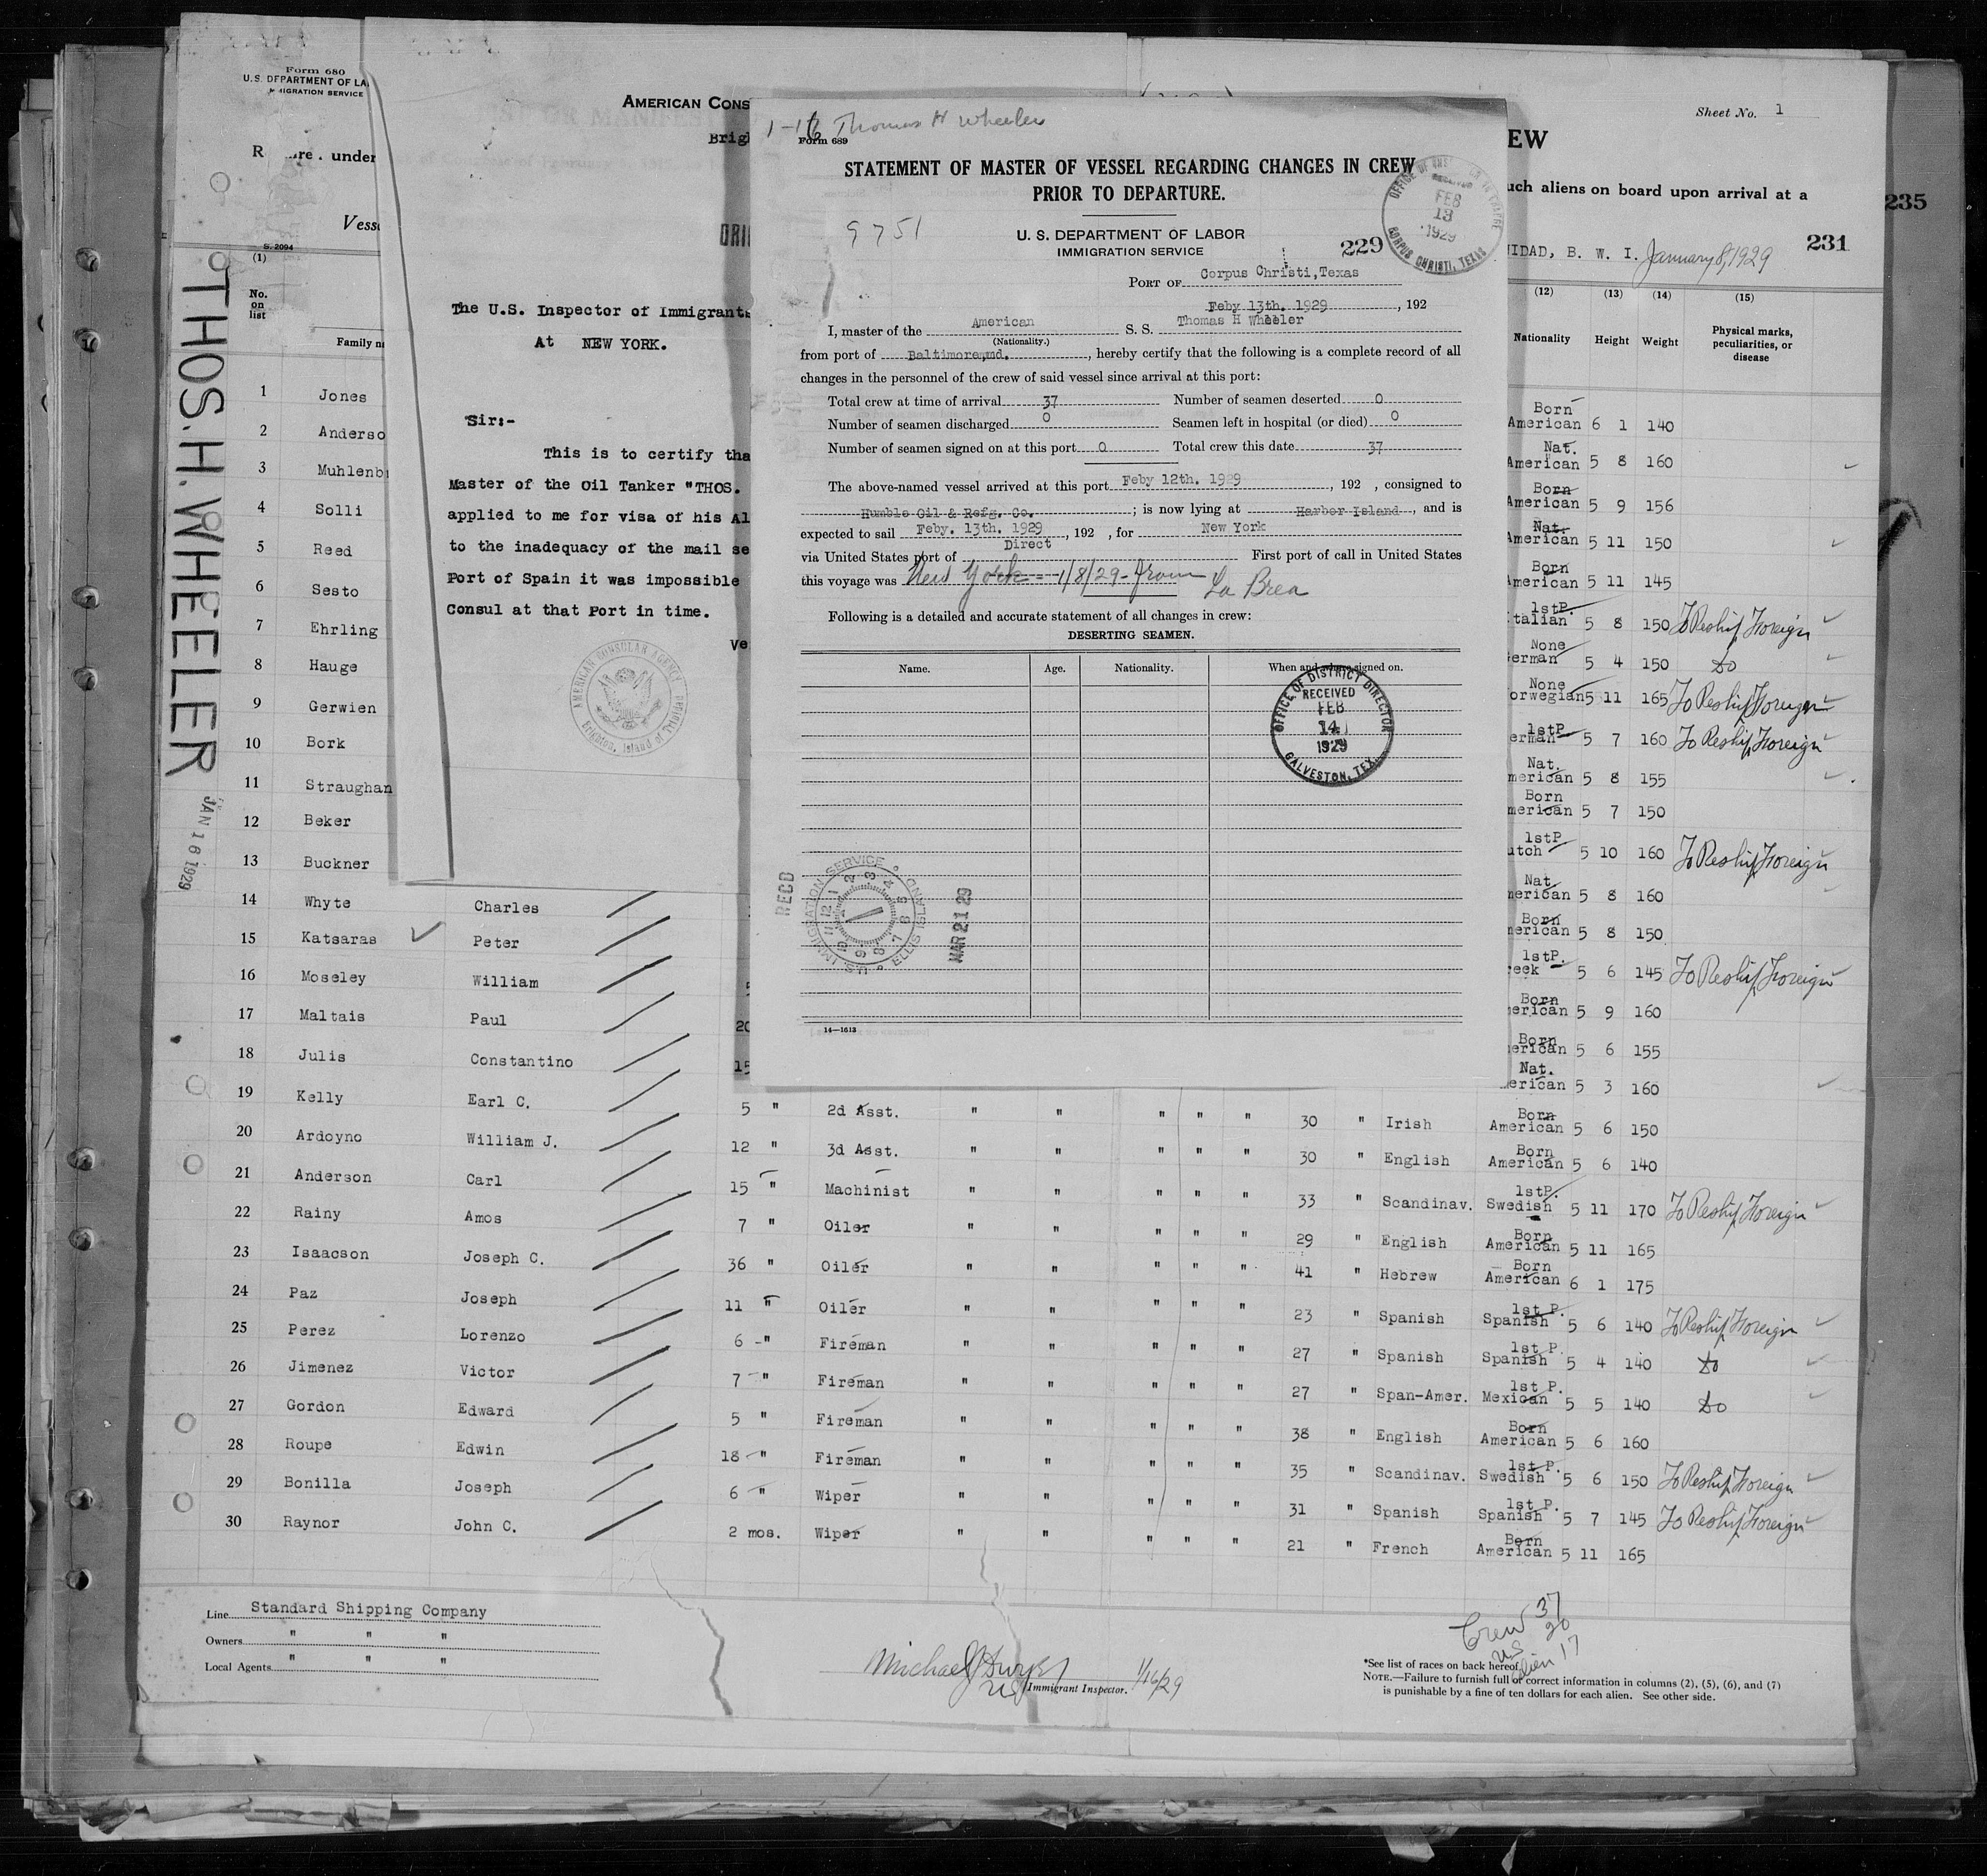 Form 680
U.S. DEPARTMENT OF LA
MIGRATION SERVICE
under
Vess
S. 2094
(1)
No.
on
list
Family n
THOS. H. WHEELER
JAN 16 1929
AMERICAN CONS
Brig
ORI
The U.S. Inspector of Immigrants
At NEW YORK.
Sir:-
This is to certify tha
Master of the Oil Tanker "THOS.
applied to me for visa of his Al
to the inadequacy of the mail se
Port of Spain it was impossible
Consul at that Port in time.
Ve
AMERICAN CONSULAR AGENCY
Brighton, Island of Trinidad
1-16 Thomas H Wheeler
Form 689
STATEMENT OF MASTER OF VESSEL REGARDING CHANGES IN CREW
PRIOR TO DEPARTURE.
9751
U. S. DEPARTMENT OF LABOR
IMMIGRATION SERVICE
229
FEB
13
1929
CORPUS CHRISTI, TEXAS
PORT OF Corpus Christi, Texas
Feby 13th. 1929, 192
I, master of the American S. S. Thomas H Wheeler
(Nationality.)
from port of Baltimore, md., hereby certify that the following is a complete record of all
changes in the personnel of the crew of said vessel since arrival at this port:
Total crew at time of arrival 37 Number of seamen deserted 0
Number of seamen discharged 0 Seamen left in hospital (or died) 0
Number of seamen signed on at this port 0 Total crew this date 37
The above-named vessel arrived at this port Feby 12th. 1929, 192 , consigned to
Humble Oil & Refg. Co. ; is now lying at Harbor Island, and is
expected to sail Feby. 13th. 1929, 192 , for New York
via United States port of Direct First port of call in United States
this voyage was New York -- 1/8/29 - from La Brea
Following is a detailed and accurate statement of all changes in crew:
DESERTING SEAMEN.
Name. Age. Nationality. When and where signed on.
OFFICE OF DISTRICT DIRECTOR
RECEIVED
FEB
14
1929
GALVESTON, TEX.
RECD
U.S. IMMIGRATION SERVICE
ELLIS ISLAND
MAR 21 29
14—1613
Sheet No. 1
EW
uch aliens on board upon arrival at a
235
231
IDAD, B. W. I. January 8, 1929
(12) (13) (14) (15)
Nationality Height Weight Physical marks,
peculiarities, or
disease
1 Jones Born American 6 1 140
2 Anderso Nat. American 5 8 160
3 Muhlenb Born American 5 9 156
4 Solli Nat. American 5 11 150
5 Reed Born American 5 11 145
6 Sesto 1stP. talian 5 8 150 To Reship Foreign
7 Ehrling None erman 5 4 150 do
8 Hauge None orwegian 5 11 165 To Reship Foreign
9 Gerwien 1stP. erman 5 7 160 To Reship Foreign
10 Bork Nat. merican 5 8 155
11 Straughan Born merican 5 7 150
12 Beker 1stP utch 5 10 160 To Reship Foreign
13 Buckner Nat. merican 5 8 160
14 Whyte Charles Born merican 5 8 150
15 Katsaras Peter 1stP. reek 5 6 145 To Reship Foreign
16 Moseley William 5 Born erican 5 9 160
17 Maltais Paul 20 Born erican 5 6 155
18 Julis Constantino 15 Nat. erican 5 3 160
19 Kelly Earl C. 5 " 2d Asst. " " " " " 30 " Irish Born American 5 6 150
20 Ardoyno William J. 12 " 3d Asst. " " " " " 30 " English Born American 5 6 140
21 Anderson Carl 15 " Machinist " " " " " 33 " Scandinav. 1stP. Swedish 5 11 170 To Reship Foreign
22 Rainy Amos 7 " Oiler " " " " " 29 " English Born American 5 11 165
23 Isaacson Joseph C. 36 " Oiler " " " " " 41 " Hebrew Born American 6 1 175
24 Paz Joseph 11 " Oiler " " " " " 23 " Spanish 1st P. Spanish 5 6 140 To Reship Foreign
25 Perez Lorenzo 6 " Fireman " " " " " 27 " Spanish 1st P. Spanish 5 4 140 do
26 Jimenez Victor 7 " Fireman " " " " " 27 " Span-Amer. 1st P. Mexican 5 5 140 do
27 Gordon Edward 5 " Fireman " " " " " 38 " English Born American 5 6 160
28 Roupe Edwin 18 " Fireman " " " " " 35 " Scandinav. 1st P. Swedish 5 6 150 To Reship Foreign
29 Bonilla Joseph 6 " Wiper " " " " " 31 " Spanish 1st P. Spanish 5 7 145 To Reship Foreign
30 Raynor John C. 2 mos. Wiper " " " " " 21 " French Born American 5 11 165
Line Standard Shipping Company
Owners " " "
Local Agents " " "
Immigrant Inspector. 1/16/29
Crew 37
US 20
Alien 17
*See list of races on back hereof.
NOTE.—Failure to furnish full or correct information in columns (2), (5), (6), and (7)
is punishable by a fine of ten dollars for each alien. See other side.